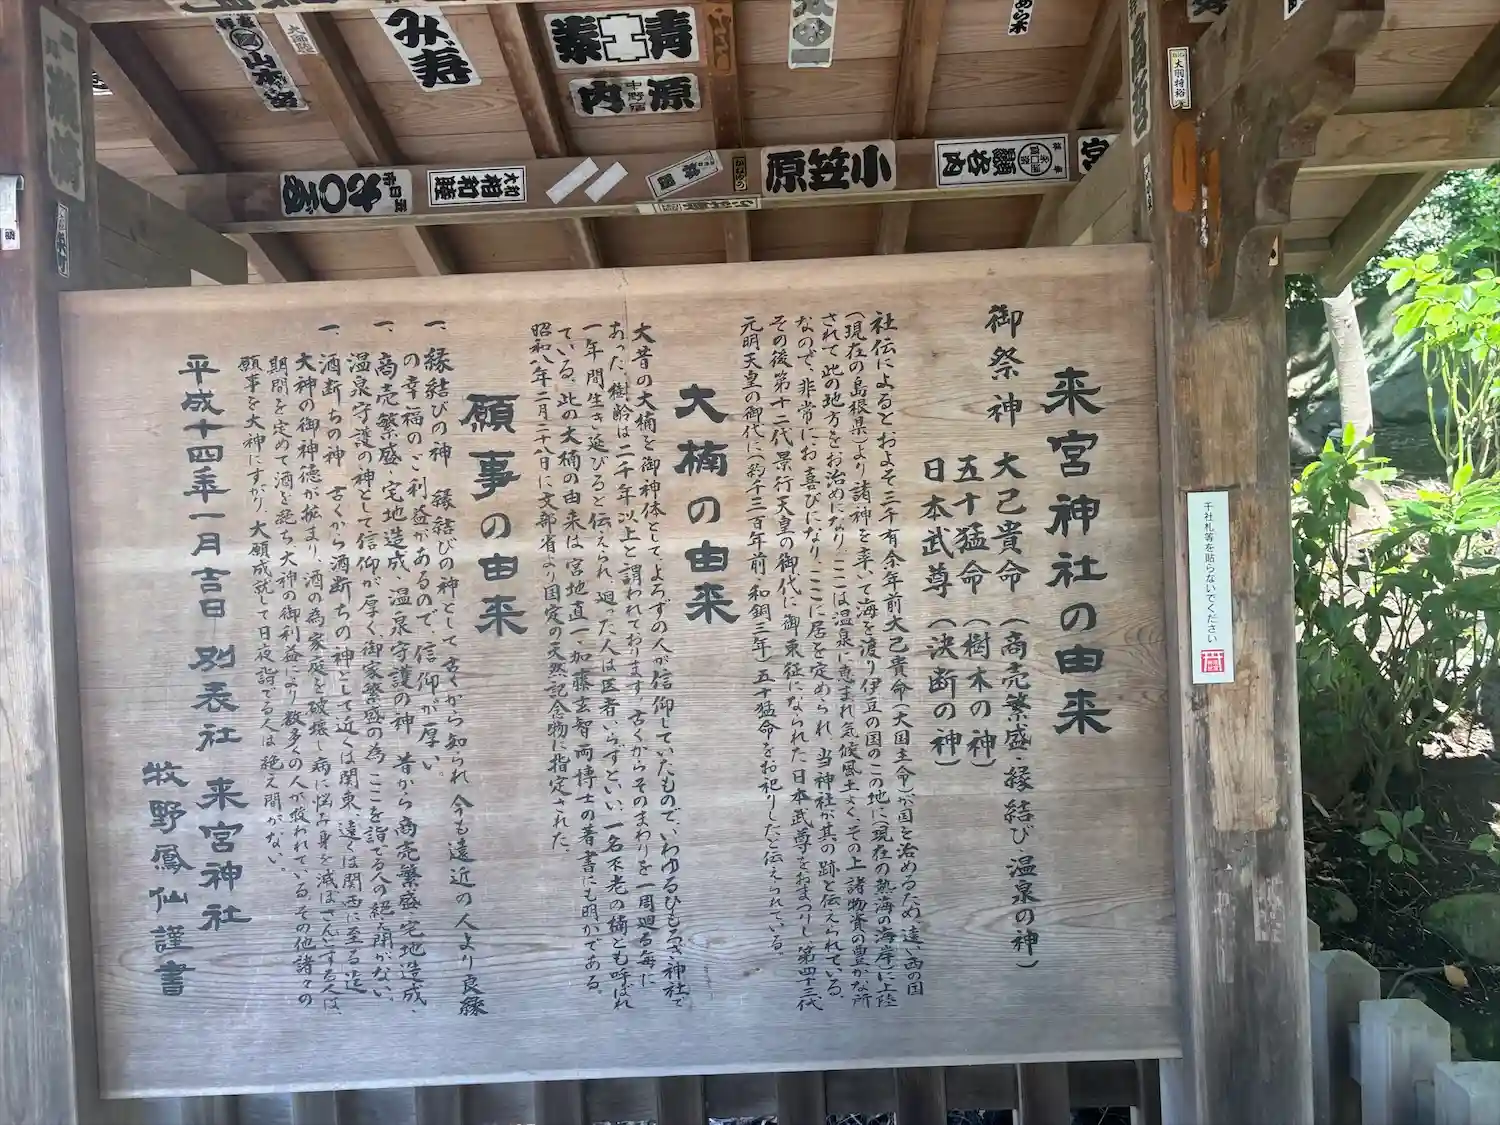 来宮神社の由来
御祭神 大己貴命（商売繁盛・縁結び・温泉の神）
五十猛命（樹木の神）
日本武尊（決断の神）
社伝によるとおよそ三千有余年前大己貴命（大国主命）が国を治めるため、遠い西の国
（現在の島根県）より諸神を率いて海を渡り伊豆の国のこの地に（現在の熱海の海岸）に上陸
されて此の地方をお治めになり、ここは温泉に恵まれ気候風土よく、その上諸物資の豊かな所
なので、非常にお喜びになり、ここに居を定められ、当神社が其の跡と伝えられている。
その後第十二代景行天皇の御代に御東征になられた日本武尊をおまつりし第四十三代
元明天皇の御代に（約千三百年前・和銅三年）五十猛命をお祀りしたと伝えられている。
大楠の由来
大昔の大楠を御神体として、よろずの人が信仰していたもので、いわゆるひもろぎ神社で
あった、樹齢は二千年以上と謂われております、古くからそのまわりを一周廻る毎に
一年間生き延びると伝えられ、廻った人は医者いらずといい、一名不老の楠とも呼ばれ
ている、此の大楠の由来は宮地直一加藤玄智両博士の著書にも明かである。
昭和八年二月二十八日に文部省より国定の天然記念物に指定された。
願事の由来
一、縁結びの神 縁結びの神として古くから知られ今も遠近の人より良縁
の幸福のご利益があるので、信仰が厚い。
一、商売繁盛・宅地造成・温泉守護の神 昔から商売繁盛・宅地造成、
温泉守護の神として信仰が厚く御家繁盛の為 ここを詣でる人の絶え間がない
一、酒断ちの神 古くから酒断ちの神として近くは関東、遠くは関西に至る迄
大神の御神徳が拡まり、酒の為家庭を破壊し病に悩み身を滅ぼさんとする人は、
期間を定めて酒を絶ち、大神の御利益により数多くの人が救われている、その他諸々の
願事を大神にすがり、大願成就して日夜詣でる人は絶え間がない。
平成十四年一月吉日 別表社 来宮神社
牧野鳳仙謹書
千社札等を貼らないでください
み寿
青
源
中野宿
内
小笠原
大和